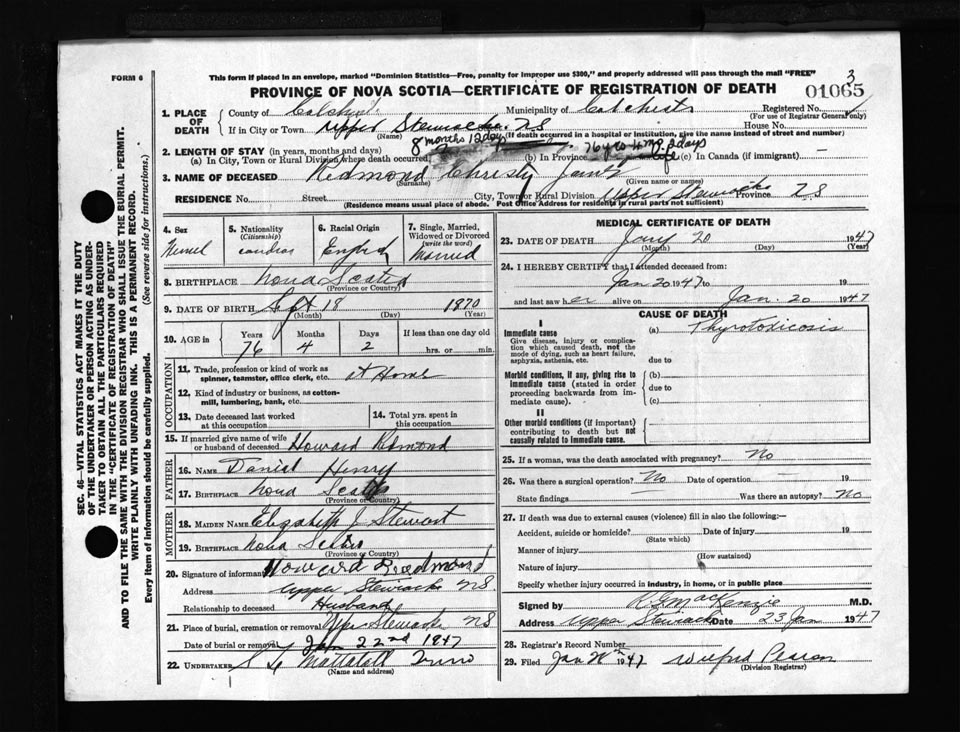 FORM 6
This form if placed in an envelope, marked "Dominion Statistics—Free, penalty for improper use $300," and properly addressed will pass through the mail "FREE"
PROVINCE OF NOVA SCOTIA—CERTIFICATE OF REGISTRATION OF DEATH
3
01065
1. PLACE OF DEATH
County of
Municipality of
Registered No.
(For use of Registrar General only)
If in City or Town Upper Stewiacke NS
House No.
(Name) (If death occurred in a hospital or institution, give the name instead of street and number)
8 months 12 days
2. LENGTH OF STAY (in years, months and days)
(a) In City, Town or Rural Division where death occurred, (b) In Province (c) In Canada (if immigrant) —
3. NAME OF DECEASED Redmond Christy
(Surname) (Given name or names)
RESIDENCE No. Street City, Town or Rural Division Upper Stewiacke Province N.S
(Residence means usual place of abode. Post Office Address for residents in rural parts not sufficient)
4. Sex
5. Nationality (Citizenship)
6. Racial Origin
English
7. Single, Married, Widowed or Divorced (write the word)
Married
8. BIRTHPLACE Nova Scotia
(Province or Country)
9. DATE OF BIRTH Sept 18 1870
(Month) (Day) (Year)
10. AGE in Years Months Days If less than one day old
76 4 2 hrs. or min.
OCCUPATION
11. Trade, profession or kind of work as spinner, teamster, office clerk, etc. at Home
12. Kind of industry or business, as cotton-mill, lumbering, bank, etc.
13. Date deceased last worked at this occupation
14. Total yrs. spent in this occupation
15. If married give name of wife or husband of deceased Howard Redmond
FATHER
16. NAME Daniel Henry
17. BIRTHPLACE Nova Scotia
(Province or Country)
MOTHER
18. MAIDEN NAME Elizabeth J Stewart
19. BIRTHPLACE Nova Scotia
(Province or Country)
20. Signature of informant Howard Redmond
Address Upper Stewiacke NS.
Relationship to deceased Husband
21. Place of burial, cremation or removal Upper Stewiacke NS
Date of burial or removal Jan 22nd 1947
22. UNDERTAKER Mattatall Truro
(Name and address)
MEDICAL CERTIFICATE OF DEATH
23. DATE OF DEATH Jany 20 1947
(Month) (Day) (Year)
24. I HEREBY CERTIFY that I attended deceased from:
Jan 20 1947 to
and last saw her alive on Jan. 20 1947
CAUSE OF DEATH
I
Immediate cause
Give disease, injury or complication which caused death, not the mode of dying, such as heart failure, asphyxia, asthenia, etc.
(a) Thyrotoxicosis
due to
Morbid conditions, if any, giving rise to immediate cause (stated in order proceeding backwards from immediate cause).
(b)
due to
(c)
II
Other morbid conditions (if important) contributing to death but not causally related to immediate cause.
25. If a woman, was the death associated with pregnancy? No
26. Was there a surgical operation? No Date of operation 19
State findings Was there an autopsy? No
27. If death was due to external causes (violence) fill in also the following:—
Accident, suicide or homicide? Date of injury 19
(State which)
Manner of injury
(How sustained)
Nature of injury
Specify whether injury occurred in industry, in home, or in public place
Signed by MacKenzie M.D.
Address Upper Stewiacke Date 23 Jan 1947
28. Registrar's Record Number
29. Filed Jan 1947 Wilfred Pearson
(Division Registrar)
SEC. 46—VITAL STATISTICS ACT MAKES IT THE DUTY
OF THE UNDERTAKER OR PERSON ACTING AS UNDERTAKER TO OBTAIN ALL THE PARTICULARS REQUIRED
IN THE "CERTIFICATE OF REGISTRATION OF DEATH"
AND TO FILE THE SAME WITH THE DIVISION REGISTRAR WHO SHALL ISSUE THE BURIAL PERMIT.
WRITE PLAINLY WITH UNFADING INK. THIS IS A PERMANENT RECORD.
Every item of information should be carefully supplied. (See reverse side for instructions.)